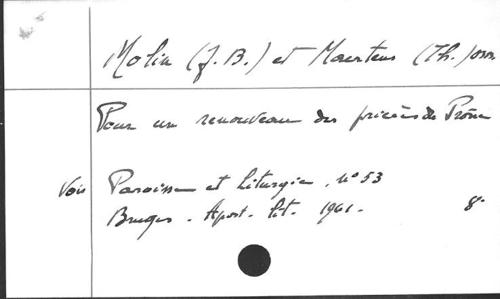 Molin (J. B.) et Maertens (Th.) osb.
Pour un renouveau des prières du Prône
Voir Paroisse et Liturgie, n° 53
Bruges - Apost. lit. 1961. 8°